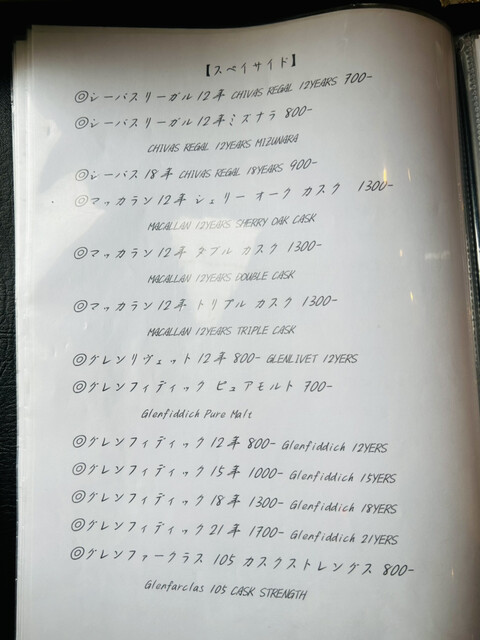 【スペイサイド】
◎シーバスリーガル 12年 CHIVAS REGAL 12YEARS 700-
◎シーバスリーガル 12年ミズナラ 800-
CHIVAS REGAL 12YEARS MIZUNARA
◎シーバス 18年 CHIVAS REGAL 18YEARS 900-
◎マッカラン 12年 シェリー オーク カスク 1300-
MACALLAN 12YEARS SHERRY OAK CASK
◎マッカラン 12年 ダブル カスク 1300-
MACALLAN 12YEARS DOUBLE CASK
◎マッカラン 12年 トリプル カスク 1300-
MACALLAN 12YEARS TRIPLE CASK
◎グレンリヴェット 12年 800- GLENLIVET 12YERS
◎グレンフィディック ピュアモルト 700-
Glenfiddich Pure Malt
◎グレンフィディック 12年 800- Glenfiddich 12YERS
◎グレンフィディック 15年 1000- Glenfiddich 15YERS
◎グレンフィディック 18年 1300- Glenfiddich 18YERS
◎グレンフィディック 21年 1700- Glenfiddich 21YERS
◎グレンファークラス 105 カスクストレングス 800-
Glenfarclas 105 CASK STRENGTH